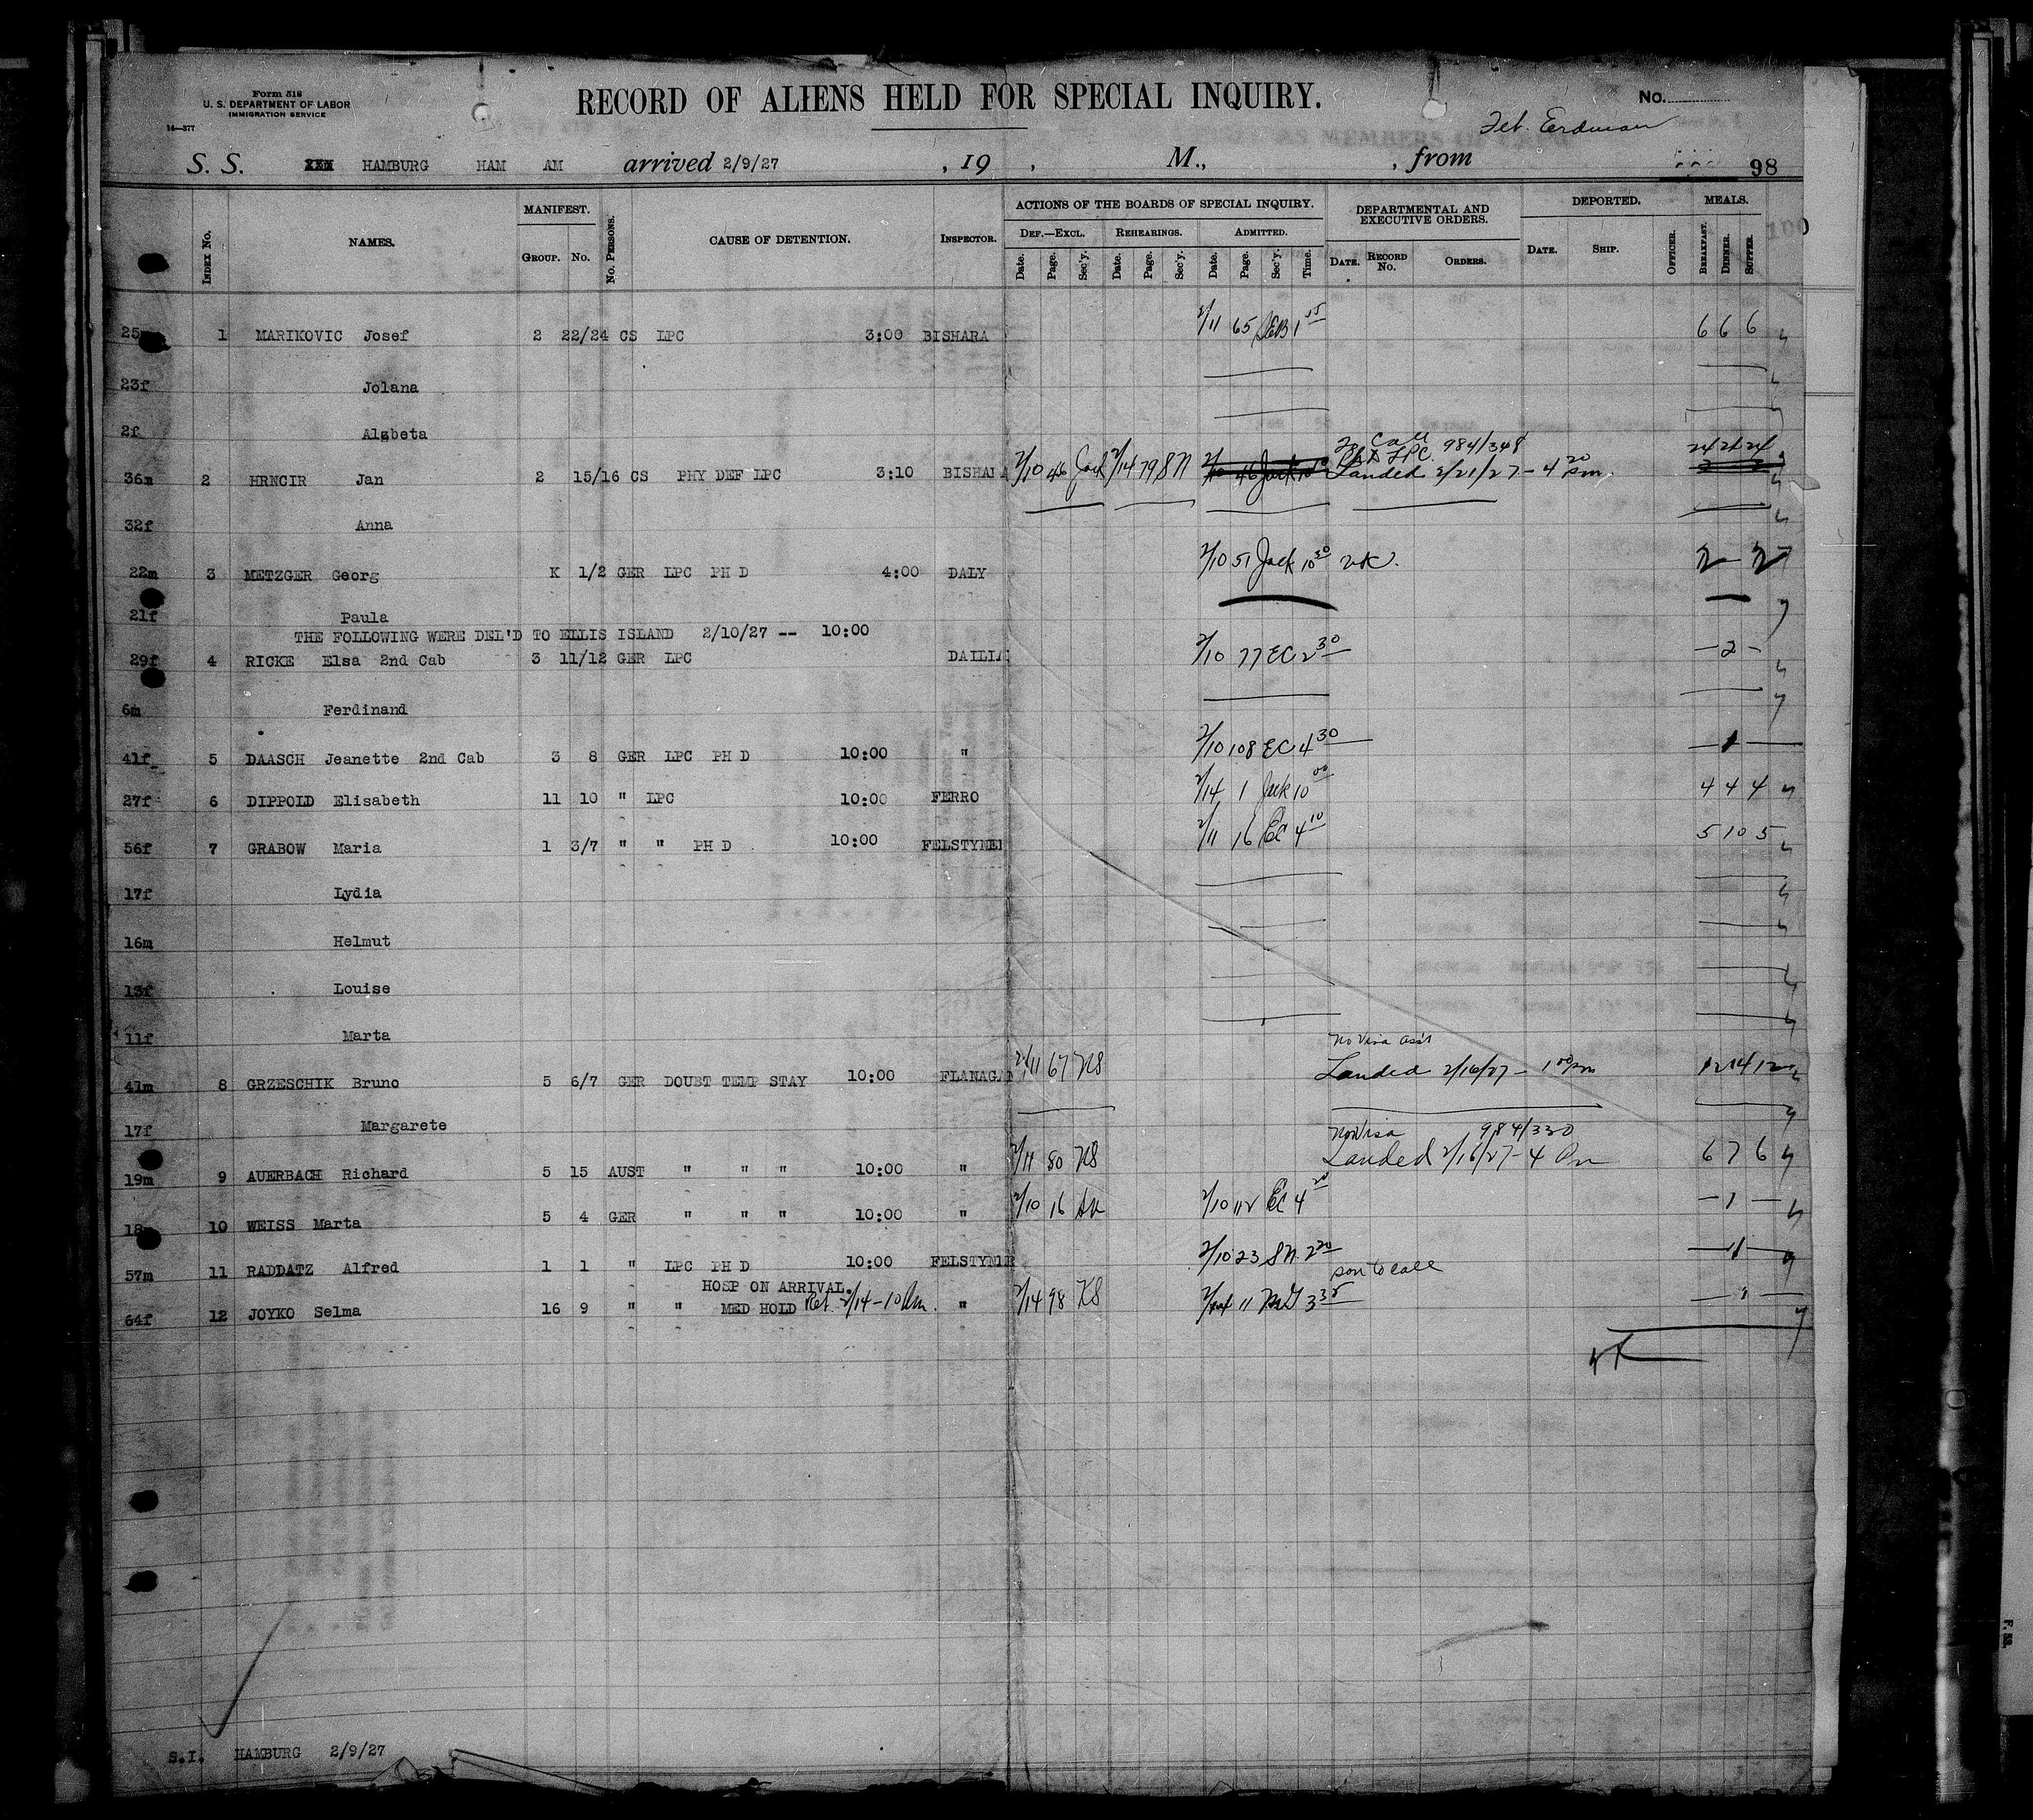 Form 518
U. S. DEPARTMENT OF LABOR
IMMIGRATION SERVICE
14—377
RECORD OF ALIENS HELD FOR SPECIAL INQUIRY.
No.
Feb. Erdman
S. S. HAMBURG HAM AM arrived 2/9/27 , 19 , M., , from 98
INDEX No. NAMES. MANIFEST. GROUP. No. No. PERSONS. CAUSE OF DETENTION. INSPECTOR. ACTIONS OF THE BOARDS OF SPECIAL INQUIRY. DEPARTMENTAL AND EXECUTIVE ORDERS. DEPORTED. MEALS.
DEF.—EXCL. REHEARINGS. ADMITTED.
Date. Page. Sec'y. Date. Page. Sec'y. Date. Page. Sec'y. Time. DATE. RECORD No. ORDERS. DATE. SHIP. OFFICER. BREAKFAST. DINNER. SUPPER.
100
25m 1 MARIKOVIC Josef 2 22/24 CS LPC 3:00 BISHARA 2/11 65 1 6 6 6
23f Jolana
2f Algbeta
Call 984/348
36m 2 HRNCIR Jan 2 15/16 CS PHY DEF LPC 3:10 BISHARA 2/10 46 Jack 2/14 79 SN LPC. Landed 2/21/27 - 4 20 pm
32f Anna
22m 3 METZGER Georg K 1/2 GER LPC PH D 4:00 DALY 2/10 51 Jack 10 30 2 - 2
21f Paula
THE FOLLOWING WERE DEL'D TO ELLIS ISLAND 2/10/27 -- 10:00
29f 4 RICKE Elsa 2nd Cab 3 11/12 GER LPC DAILIA 2/10 77 EC 2 30 - 2 -
6m Ferdinand
41f 5 DAASCH Jeanette 2nd Cab 3 8 GER LPC PH D 10:00 " 2/10 108 EC 4 30 - 1 -
27f 6 DIPPOLD Elisabeth 11 10 " LPC 10:00 FERRO 2/14 1 Jack 10 00 4 4 4
56f 7 GRABOW Maria 1 3/7 " " PH D 10:00 FELSTYNER 2/11 16 EC 4 10 5 10 5
17f Lydia
16m Helmut
13f Louise
11f Marta
No Visa
41m 8 GRZESCHIK Bruno 5 6/7 GER DOUBT TEMP STAY 10:00 FLANAGAN 2/11 67 NS Landed 2/16/27 - 1 00 pm 12 14 12
17f Margarete
No Visa 984/330
19m 9 AUERBACH Richard 5 15 AUST " " " 10:00 " 2/11 80 NS Landed 2/16/27 - 4 Pm 6 7 6
18m 10 WEISS Marta 5 4 GER " " " 10:00 " 2/10 16 2/10 112 EC 4 20 - 1 -
57m 11 RADDATZ Alfred 1 1 " LPC PH D 10:00 FELSTYNER 2/10 23 SN. 2 20 - 1 -
son to call
HOSP ON ARRIVAL.
64f 12 JOYKO Selma 16 9 " " MED HOLD Ret. 2/14-10 Am. " 2/14 98 11 3 35 - 1 -
S.I. HAMBURG 2/9/27
F. 52.